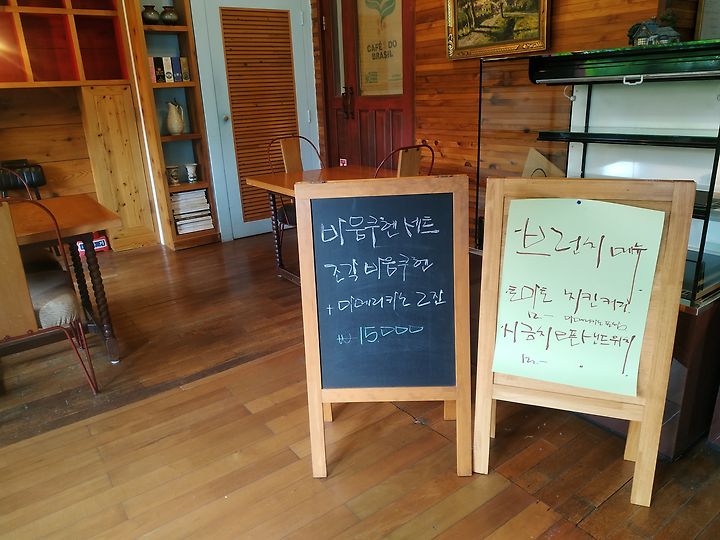 CAFÉ DO
BRASIL
바움쿠헨 세트
조각 바움쿠헨
+ 아메리카노 2잔
₩ 15,000
브런치 메뉴
토마토 치킨커리
12.- 아메리카노 포함
시금치 오픈샌드위치
12.-